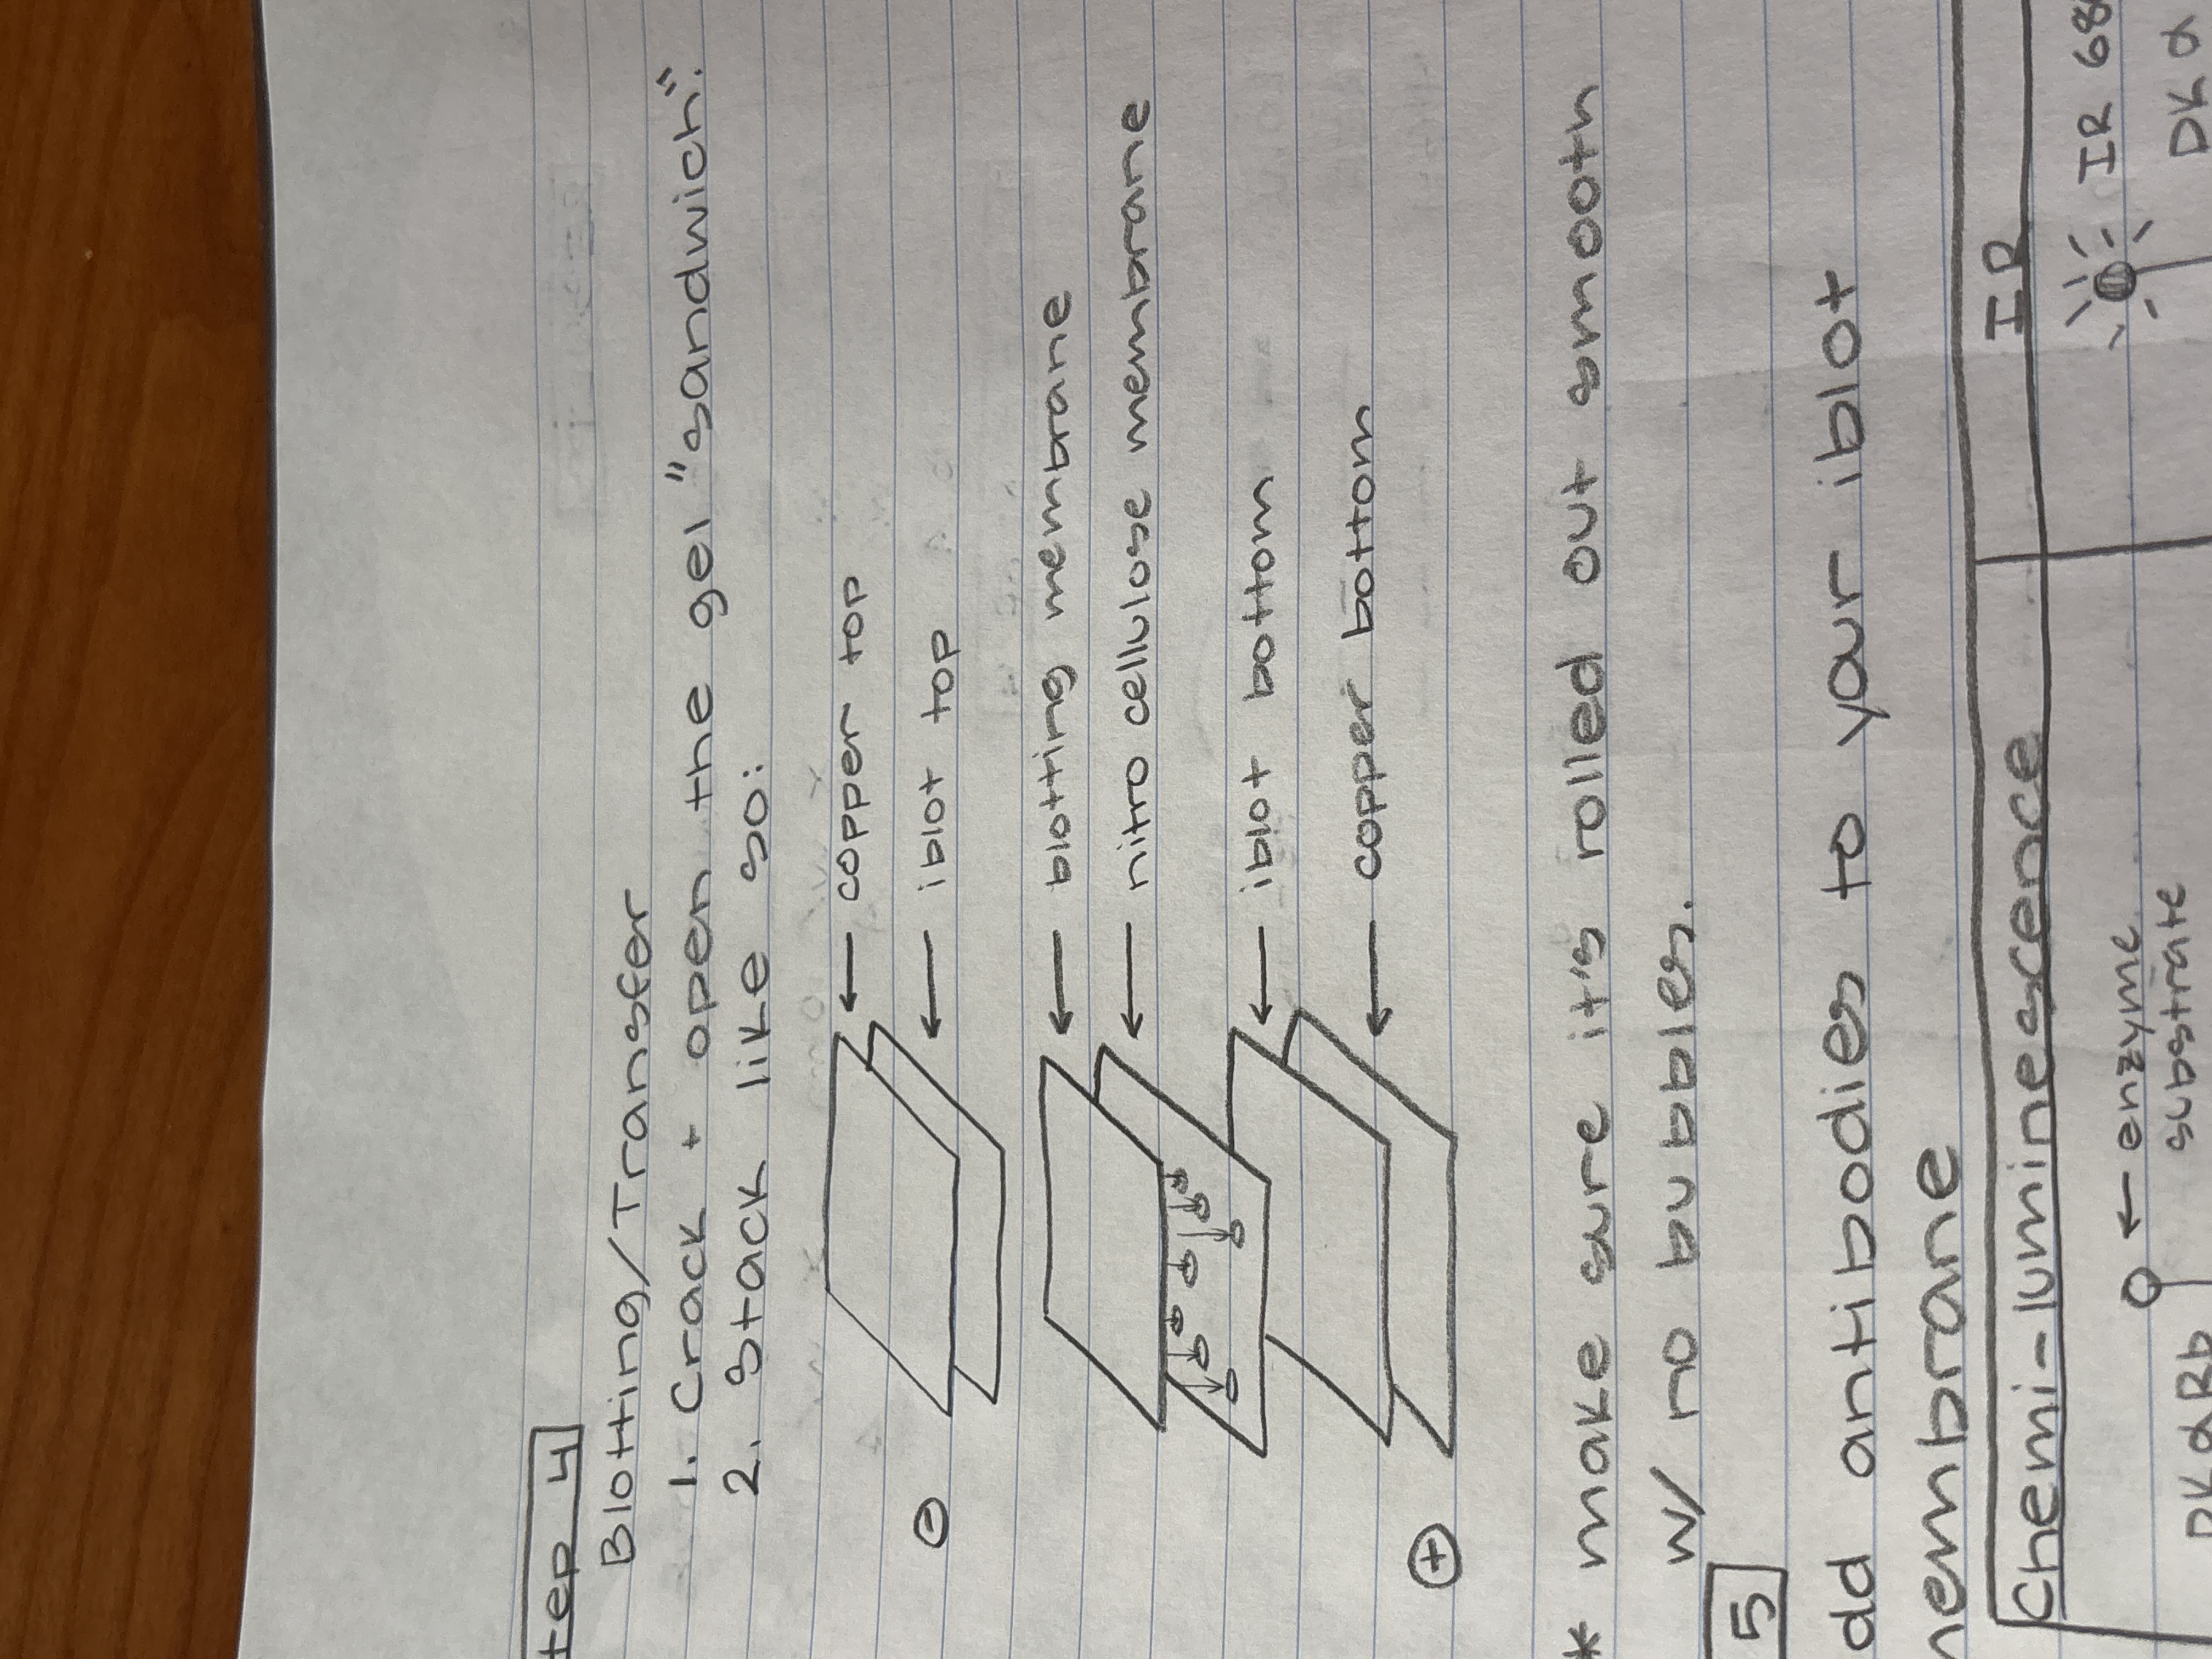 tep 4
Blotting/Transfer
1. Crack + open the gel "sandwich".
2. Stack like so:
⊖
← copper top
← iblot top
← blotting membrane
← nitro cellulose membrane
← iblot bottom
← copper bottom
⊕
* make sure it's rolled out smooth
w/ no bubbles.
5
dd antibodies to your iblot
nembrane
Chemi-luminescence
IR
← enzyme
substrate
DK α Rb
IR 68
DK α